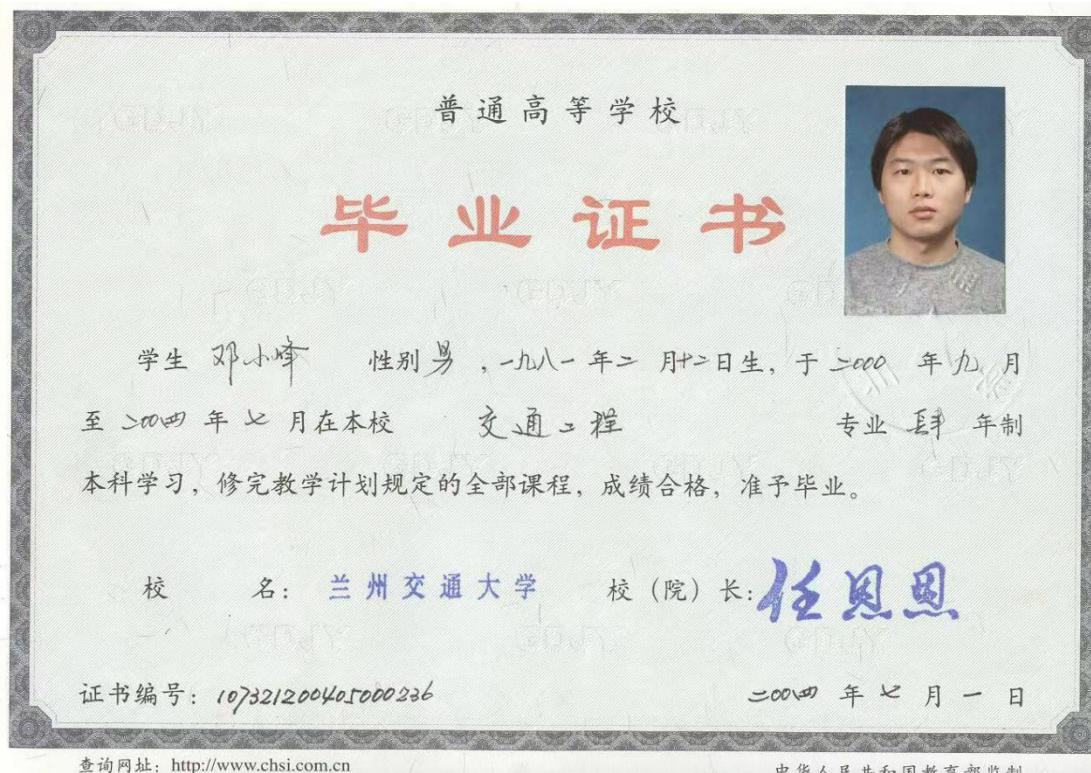 普通高等学校
毕业证书
学生 邓小峰 性别 男，一九八一年二月十二日生，于二000年九月
至二00四年七月在本校 交通工程 专业 肆 年制
本科学习，修完教学计划规定的全部课程，成绩合格，准予毕业。
校 名：兰州交通大学 校（院）长：任恩恩
证书编号：107321200405000236 二00四年七月一日
查询网址：http://www.chsi.com.cn 中华人民共和国教育部监制